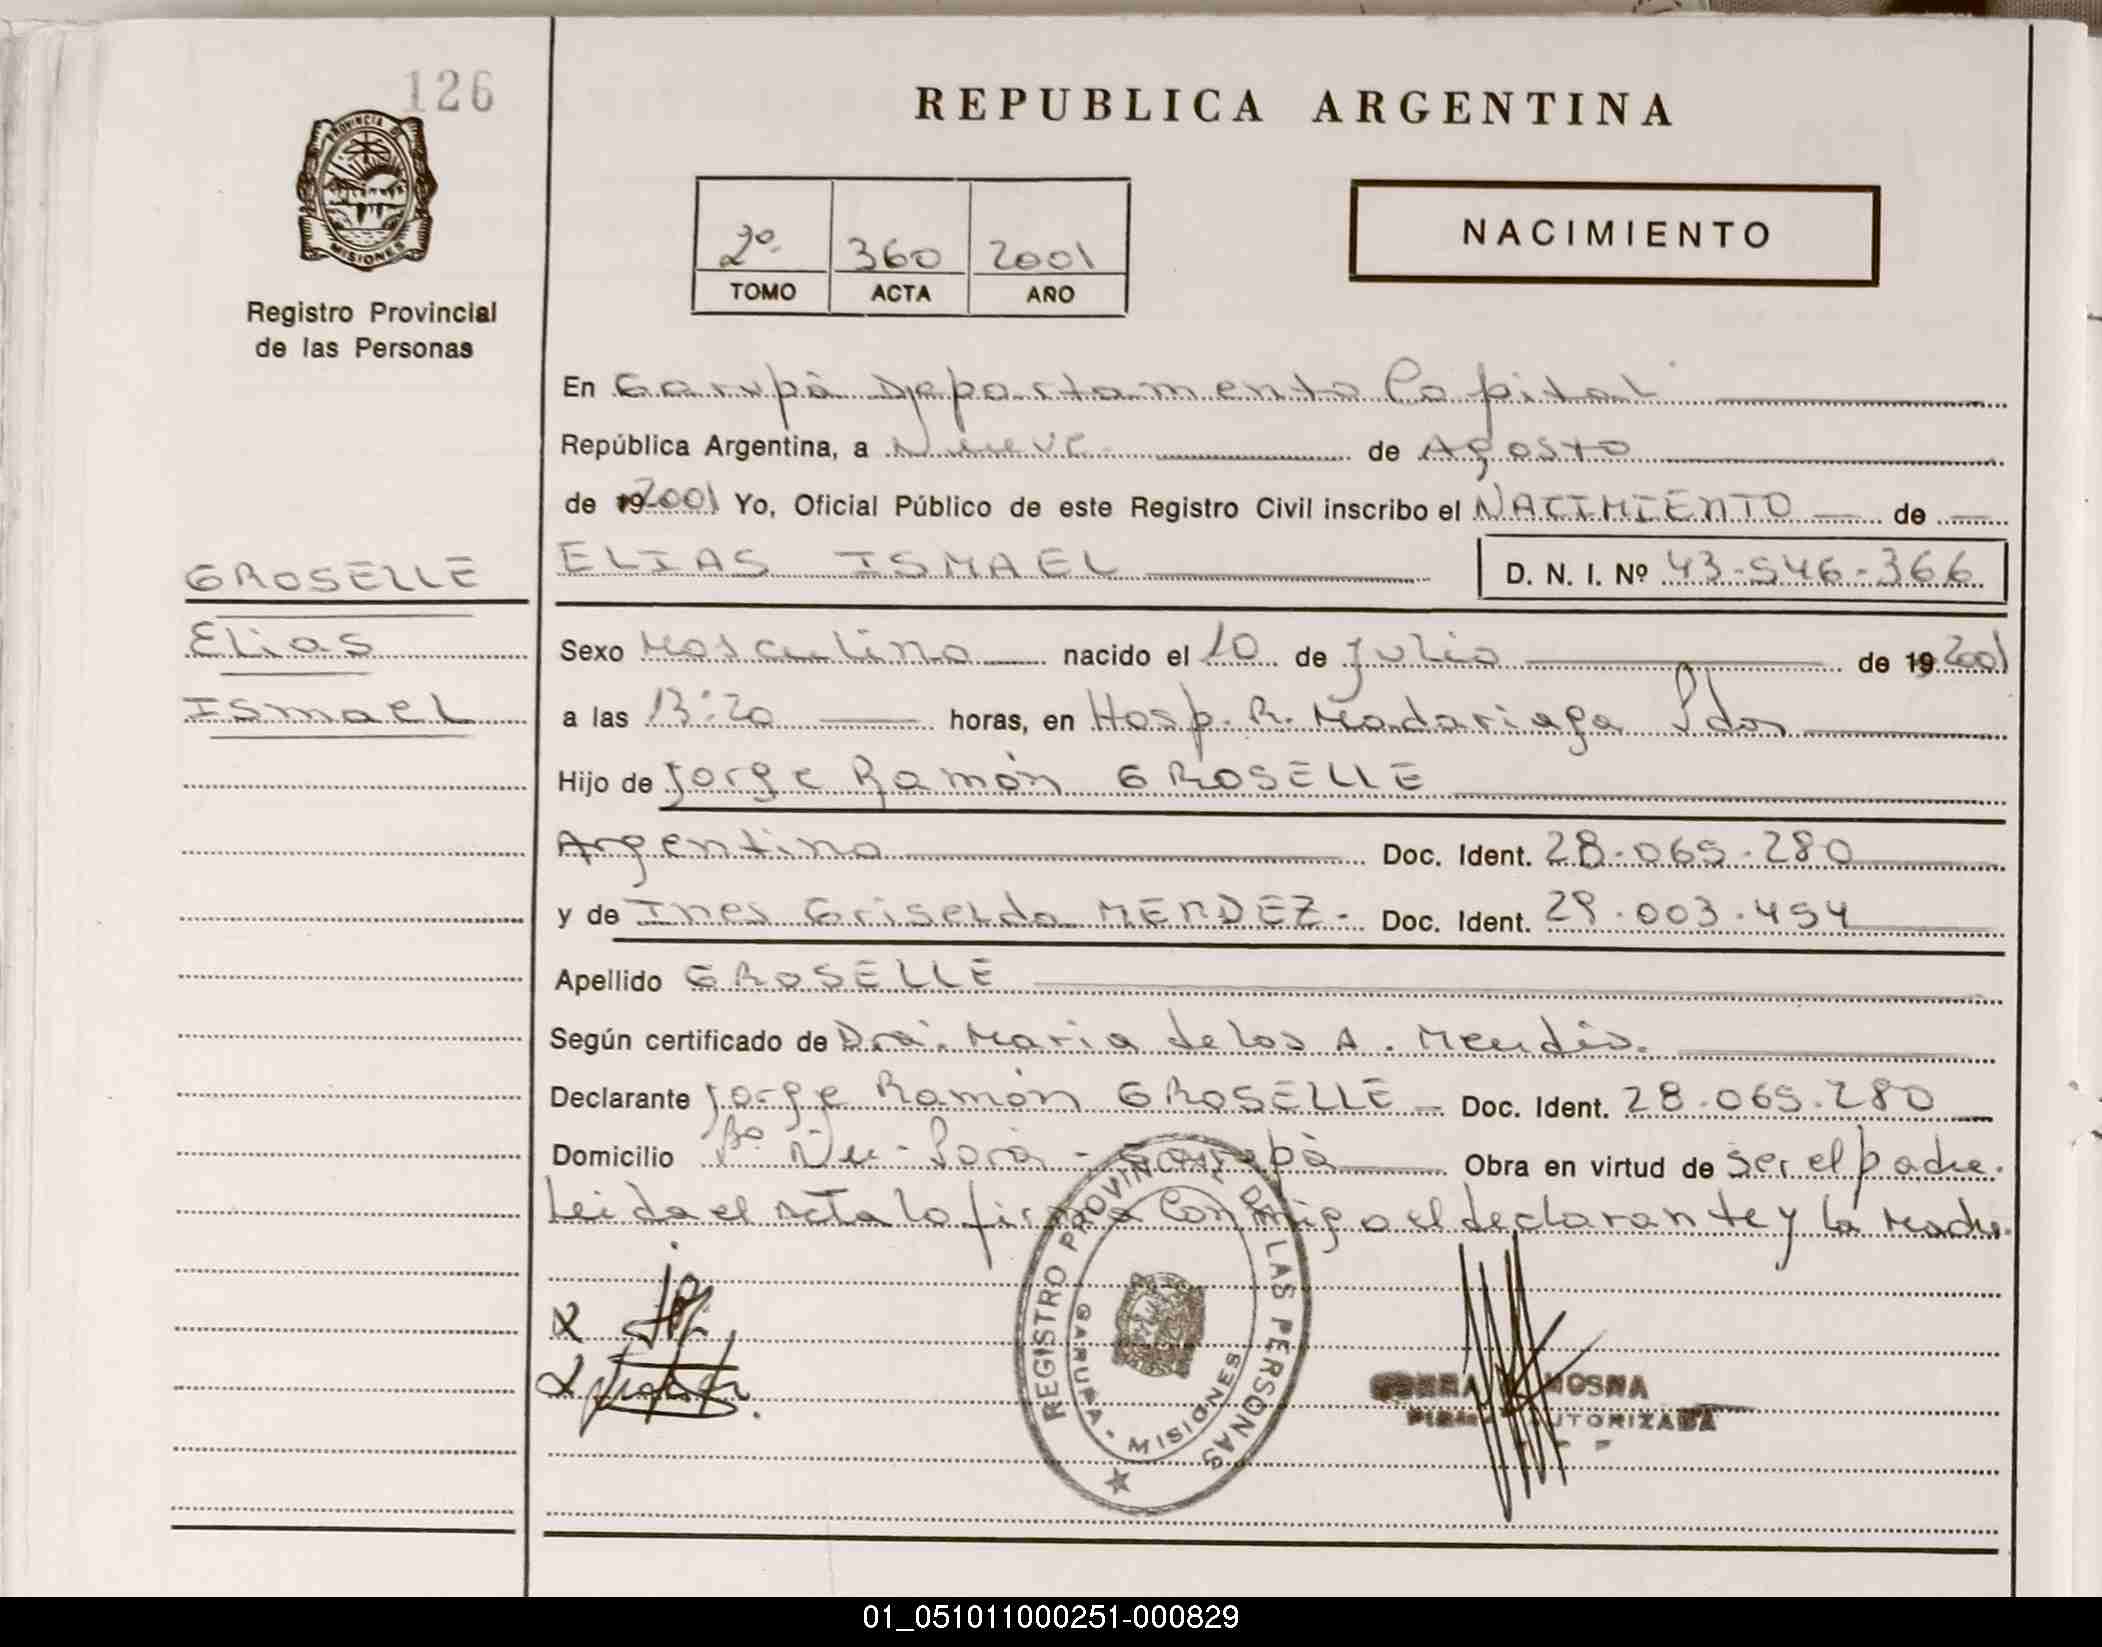 126
PROVINCIA DE
MISIONES
Registro Provincial
de las Personas
GROSELLE
Elias
Ismael
REPUBLICA ARGENTINA
2º 360 2001
TOMO ACTA AÑO
NACIMIENTO
En Garupá Departamento Capital
República Argentina, a Nueve de Agosto
de 19 2001 Yo, Oficial Público de este Registro Civil inscribo el NACIMIENTO de
ELIAS ISMAEL D. N. I. Nº 43-546-366
Sexo Masculino nacido el 10 de Julio de 19 2001
a las 13:20 horas, en Hosp. R. Madariaga Pdas
Hijo de Jorge Ramón GROSELLE
Argentino Doc. Ident. 28.065.280
y de Ines Griselda MENDEZ- Doc. Ident. 29.003.454
Apellido GROSELLE
Según certificado de Dra. Maria de los A.
Declarante Jorge Ramón GROSELLE Doc. Ident. 28.065.280
Domicilio Bº Ñu-Porá - Garupá Obra en virtud de ser el padre.
Leida el acta lo firma conmigo el declarante y la Madre.
REGISTRO PROVINCIAL DE LAS PERSONAS
GARUPA - MISIONES
AUTORIZADA
01_051011000251-000829